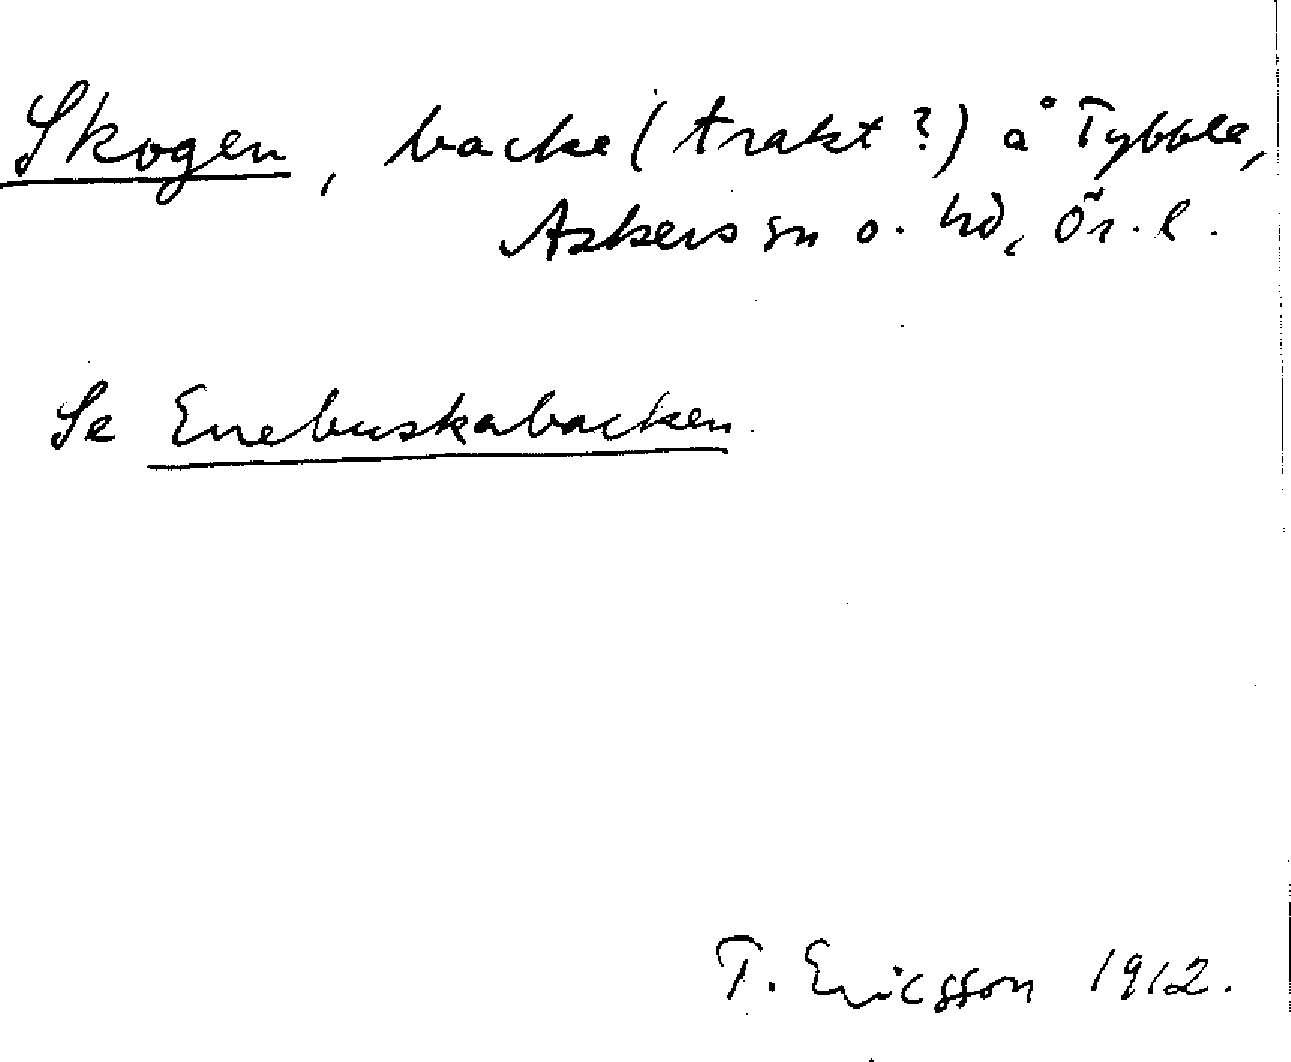 Skogen, backe (trakt?) å Tybble,
Askers sn o. hd, Ör. l.
Se Enebuskabacken.
T. Ericsson 1912.